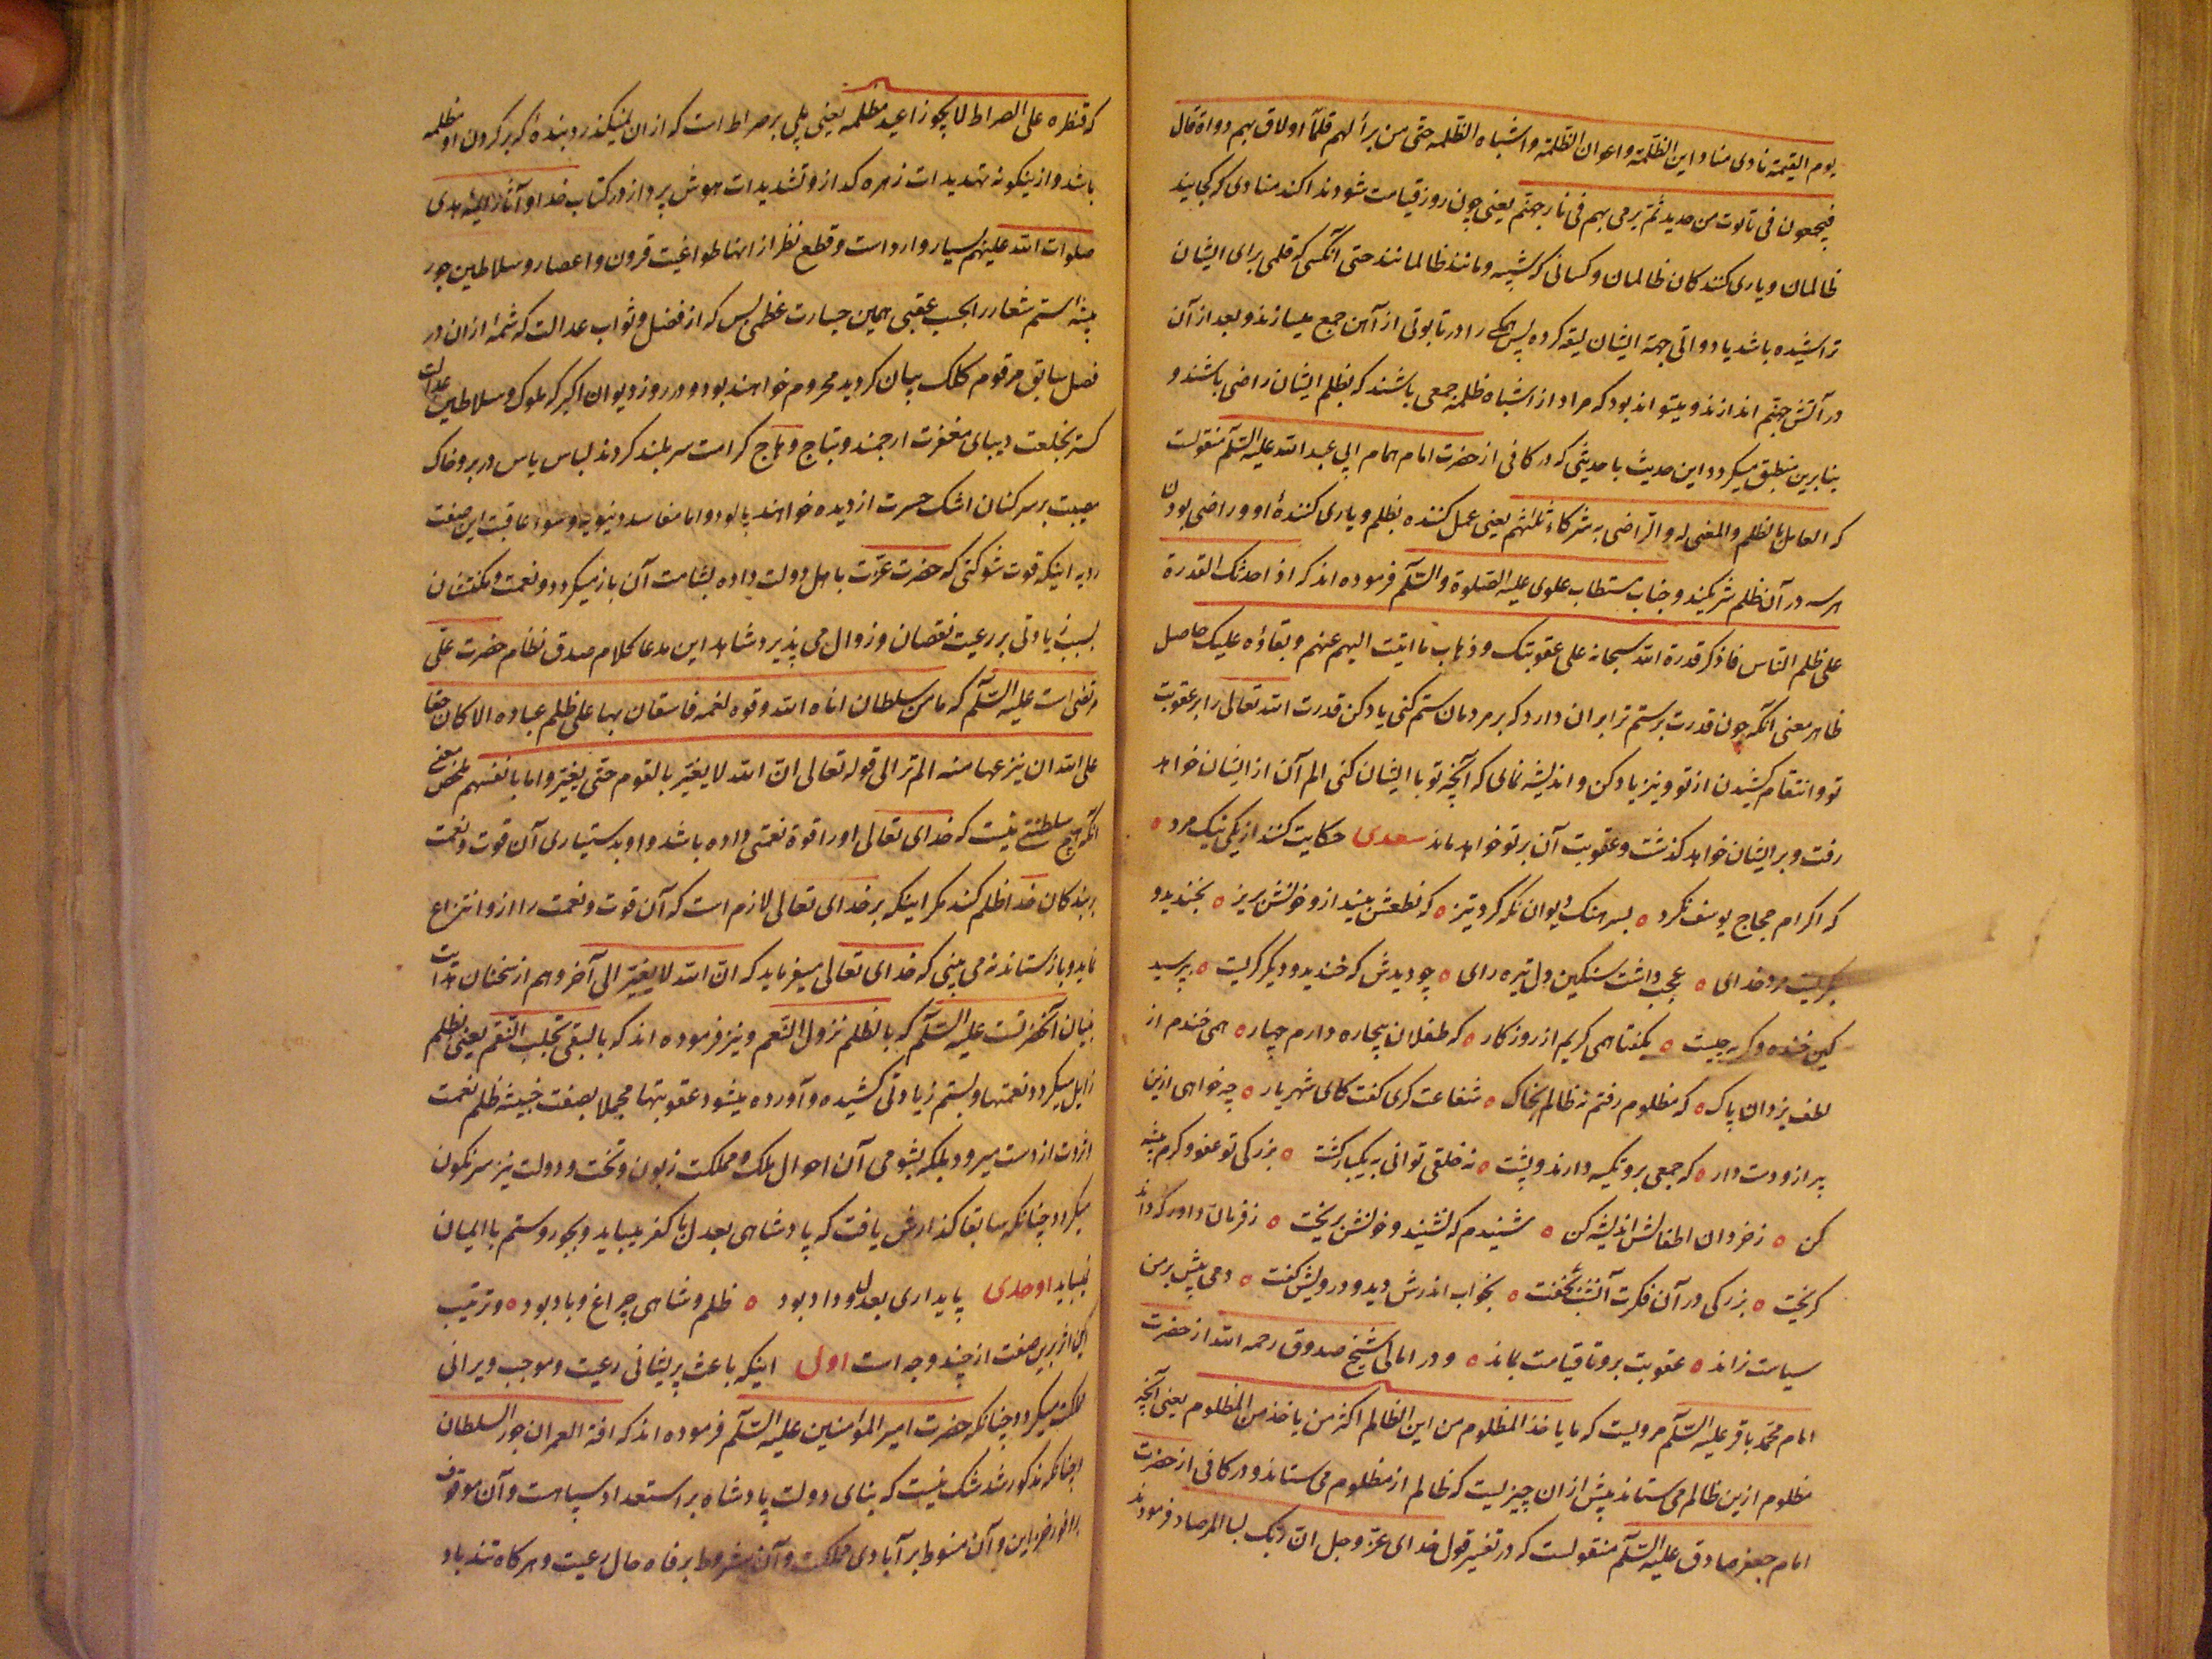 یوم القیمة نادی مناد این الظلمة و اعوان الظلمة و اشباه الظلمه حتی من برأ لهم قلماً او لاق لهم دواة قال
فیجمعون فی تابوت من حدید ثم یرمی بهم فی نار جهنم یعنی چون روز قیامت شود ندا کند منادی که کجایند
ظالمان و یاری کنندکان ظالمان و کسانی که شبیه و مانند ظالمانند حتی آنکسی که قلمی برای ایشان
تراشیده باشد یا دواتی جهة ایشان لیقه کرده پس همکی را در تابوتی از آهن جمع میسازند و بعد از آن
در آتش جهنم اندازند و میتواند بود که مراد از اشباه ظلمه جمعی باشند که بظلم ایشان راضی باشند و
بنابرین منطبق میکردد این حدیث با حدیثی که در کافی از حضرت امام همام ابی عبد الله علیه السلم منقولست
که العامل بالظلم والمعین له و الراضی به شرکاء ثلثتهم یعنی عمل کننده بظلم و یاری کنندۀ او و راضی بودن
هر سه در آن ظلم شریکند و جناب مستطاب علوی علیه الصلوة والسلم فرموده اند که اذا حدتک القدرة
علی ظلم الناس فاذکر قدرة الله سبحانه علی عقوبتک و ذهاب ما اتیت الیهم عنهم و بقاؤه علیک حاصل
ظاهر معنی آنکه چون قدرت بر ستم ترا بران دارد که بر مردمان ستم کنی یاد کن قدرت الله تعالی را بر عقوبت
تو و انتقام کشیدن از تو و نیز یاد کن و اندیشه نمای که آنچه تو با ایشان کنی الم آن از ایشان خواهد
رفت و بر ایشان خواهد کذشت و عقوبت آن بر تو خواهد ماند سعدی حکایت کنند از یکی نیک مرد
که اکرام حجاج یوسف نکرد بسرهنک دیوان نکه کرد تیز که نطعش بیندازو خونش بریز بخندید و
بکریست مرد خدای عجب داشت سنکین دل تیره رای چو دیدش که خندید و دیکر کریست بپرسید
کین خنده و کریه چیست بکفتا همی کریم از روزکار که طفلان بیچاره دارم چهار همی خندم از
لطف یزدان پاک که مظلوم رفتم نه ظالم بخاک شفاعت کری کفت کای شهریار چه خواهی ازین
پیر ازو دست دار که جمعی برو تکیه دارند و پشت نه خلقی توانی به یکبار کشت بزرکی تو عفو و کرم پیشه
کن ز خردان اطفالش اندیشه کن شنیدم که نشنید و خونش بریخت ز فرمان داور که داند
کریخت بزرکی در آن فکرت آنشب بخفت بخواب اندرش دید و درویش کفت دمی پیش بر من
سیاست نراند عقوبت برو تا قیامت بماند و در امالی شیخ صدوق رحمه الله از حضرت
امام محمد باقر علیه السلم مرویست که ما یاخذ المظلوم من این الظالم اکثر من یاخذ من المظلوم یعنی آنچه
مظلوم ازین ظالم می ستاند بیش از ان چیزیست که ظالم از مظلوم می ستاند و در کافی از حضرت
امام جعفر صادق علیه السلم منقولست که در تفسیر قول خدای عز و جل ان ربک لبا المرصاد فرمودند
که قنطره علی الصراط لا یجوزها عبد مظلمه یعنی پلی بر صراط است که از ان نمیکذرد بندۀ که بر کردن او مظلمه
باشد و ازینکونه تهدیدات زهره کداز و تشدیدات هوش پرداز در کتاب خدا و آثار ائمه هدی
صلوات الله علیهم بسیار وارد است و قطع نظر از انها طواغیت قرون و اعصار و سلاطین جور
پیشه ستم شعار را بحسب عقبی همین خسارت عظمی بس که از فضل و ثواب عدالت که شمۀ از ان در
فصل سابق مرقوم کلک بیان کردید محروم خواهند بود و در روز دیوان اکبر که ملوک و سلاطین عدالت
کستر بخلعت دیبای مغفرت ارجمند و بتاج وهاج کرامت سر بلند کردند لباس یاس در بر و خاک
مصیبت بر سر کنان اشک حسرت از دیده خواهند پالود و اما مفاسد دنیویه و سوء عاقبت این صفت
ردیه اینکه قوت شوکتی که حضرت عزت باهل دولت داده بشامت آن باز میکردد و نعمت و مکنتشان
بسبب زیادتی بر رعیت نقصان و زوال می پذیرد شاهد این مدعا کلام صدق نظام حضرت علی
مرتضی است علیه السلم که ما من سلطان اتاه الله و قوه نعمه فاستعان بها علی ظلم عباده الا کان حقا
علی الله ان ینزعها منه الم تر الی قوله تعالی ان الله لا یغیر بالقوم حتی یغیروا ما بانفسهم ملخص معنی
آنکه هیچ سلطنتی نیست که خدای تعالی او را قوة نعمتی داده باشد و او بدستیاری آن قوت و نعمت
بر بندکان خدا ظلم کند مکر اینکه بر خدای تعالی لازم است که آن قوت و نعمت را ازو انتزاع
نماید و باز ستاند نه می بینی که خدای تعالی میفرماید که ان الله لا یغیر الی آخر و هم از سخنان هدایت
بنیان آنحضرتست علیه السلم که بالظلم تزول النعم و نیز فرموده اند که بالبغی تجلب النقم یعنی بظلم
زایل میکردد نعمتها و بستم زیادتی کشیده و آورده میشود عقوبتها مجملا بصفت خبیثه ظلم نعمت
ثروت از دست میرود بلکه بشومی آن احوال ملک و مملکت زبون و تخت و دولت نیز سرنکون
میکردد چنانکه سابقا کذارش یافت که پادشاهی بعدل با کفر میپاید و بجور و ستم با ایمان
نمیپاید اوحدی پایداری بعدل و داد بود ظلم و شاهی چراغ و باد بود و ترتیب
این اثر برین صفت از چند وجه است اول اینکه باعث پریشانی رعیت و موجب ویرانی
مملکت میکردد چنانکه حضرت امیر المؤمنین علیه السلم فرموده اند که افة العمران جور السلطان
چنانکه مذکور شد شک نیست که بنای دولت پادشاه بر استعداد سپاهست و آن موقوف
خزاین و آن منوط بر آبادی مملکت و آن مشروط برفاه حال رعیت و هر کاه تند باد